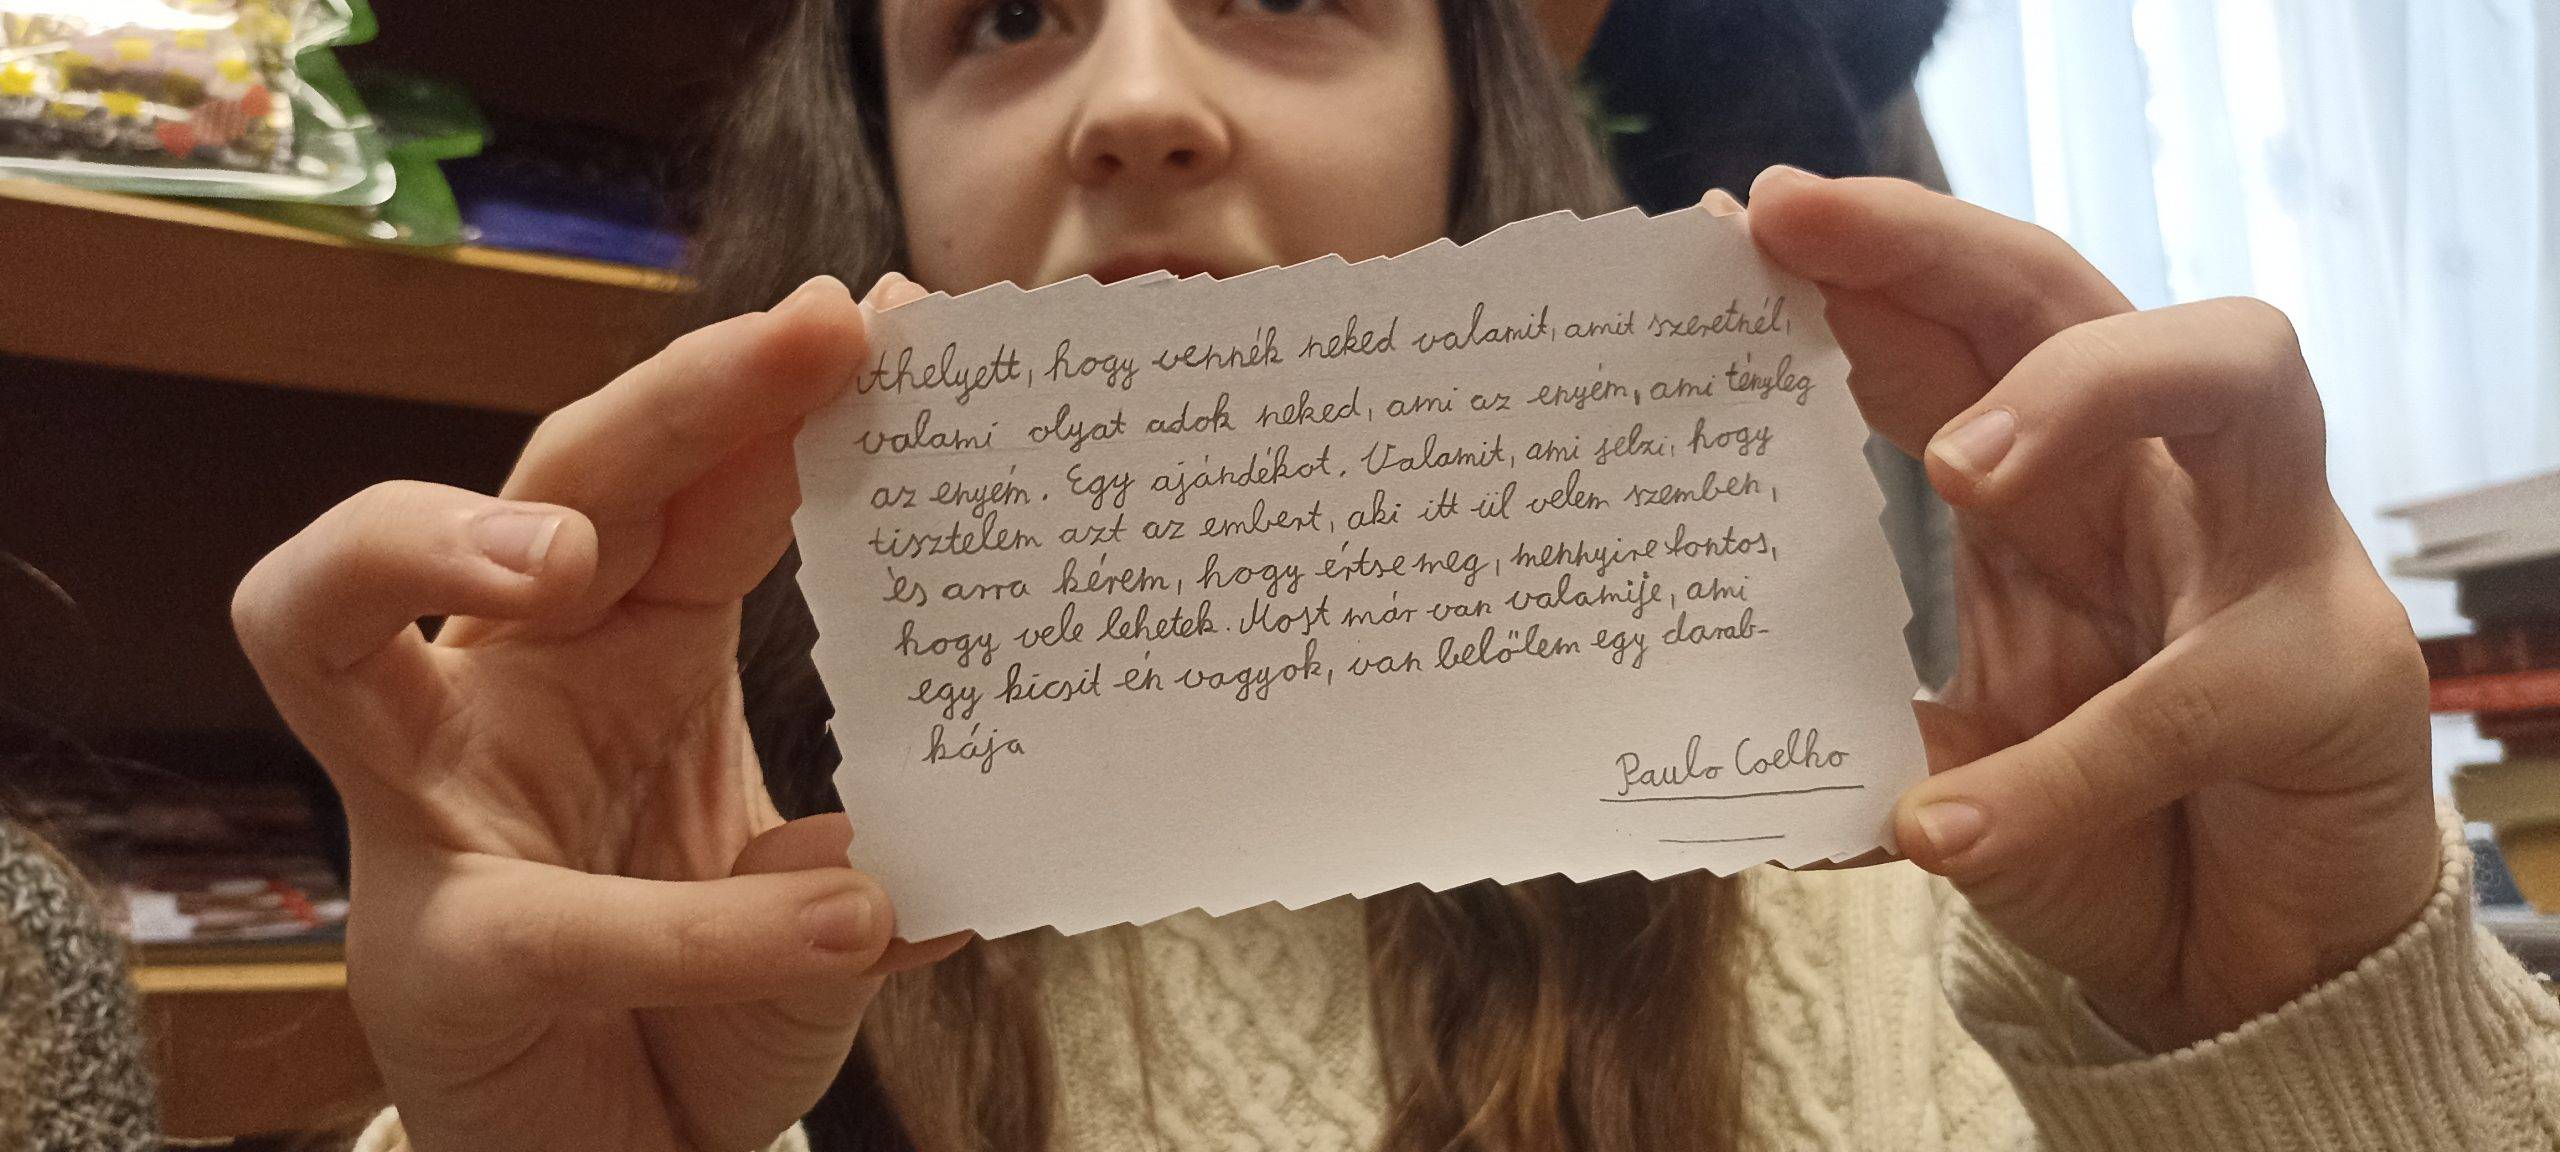 Ahelyett, hogy vennék neked valamit, amit szeretnél,
valami olyat adok neked, ami az enyém, ami tényleg
az enyém. Egy ajándékot. Valamit, ami jelzi, hogy
tisztelem azt az embert, aki itt ül velem szemben,
és arra kérem, hogy értse meg, mennyire fontos,
hogy vele lehetek. Most már van valamije, ami
egy kicsit én vagyok, van belőlem egy darab-
kája
Paulo Coelho